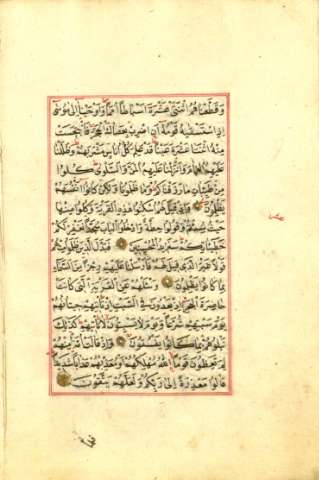 وَقَطَّعْنَاهُمُ اثْنَتَىْ عَشْرَةَ اَسْبَاطًا اُمَمًا وَاَوْحَيْنَا اِلٰى مُوسٰى
اِذِ اسْتَسْقٰيهُ قَوْمُهُ اَنِ اضْرِبْ بِعَصَاكَ الْحَجَرَ فَانْبَجَسَتْ
مِنْهُ اثْنَتَا عَشْرَةَ عَيْنًا قَدْ عَلِمَ كُلُّ اُنَاسٍ مَشْرَبَهُمْ وَظَلَّلْنَا
عَلَيْهِمُ الْغَمَامَ وَاَنْزَلْنَا عَلَيْهِمُ الْمَنَّ وَالسَّلْوٰى كُلُوا
مِنْ طَيِّبَاتِ مَا رَزَقْنَاكُمْ وَمَا ظَلَمُونَا وَلٰكِنْ كَانُوا اَنْفُسَهُمْ
يَظْلِمُونَ وَاِذْ قِيلَ لَهُمُ اسْكُنُوا هٰذِهِ الْقَرْيَةَ وَكُلُوا مِنْهَا
حَيْثُ شِئْتُمْ وَقُولُوا حِطَّةٌ وَادْخُلُوا الْبَابَ سُجَّدًا نَغْفِرْ لَكُمْ
خَطِيئَاتِكُمْ سَنَزِيدُ الْمُحْسِنِينَ فَبَدَّلَ الَّذِينَ ظَلَمُوا مِنْهُمْ
قَوْلًا غَيْرَ الَّذِى قِيلَ لَهُمْ فَاَرْسَلْنَا عَلَيْهِمْ رِجْزًا مِنَ السَّمَاءِ
بِمَا كَانُوا يَظْلِمُونَ وَسْئَلْهُمْ عَنِ الْقَرْيَةِ الَّتِى كَانَتْ
حَاضِرَةَ الْبَحْرِ اِذْ يَعْدُونَ فِى السَّبْتِ اِذْ تَاْتِيهِمْ حِيتَانُهُمْ
يَوْمَ سَبْتِهِمْ شُرَّعًا وَيَوْمَ لَا يَسْبِتُونَ لَا تَاْتِيهِمْ كَذٰلِكَ
نَبْلُوهُمْ بِمَا كَانُوا يَفْسُقُونَ وَاِذْ قَالَتْ اُمَّةٌ مِنْهُمْ
لِمَ تَعِظُونَ قَوْمًا اللّٰهُ مُهْلِكُهُمْ اَوْ مُعَذِّبُهُمْ عَذَابًا شَدِيدًا
قَالُوا مَعْذِرَةً اِلٰى رَبِّكُمْ وَلَعَلَّهُمْ يَتَّقُونَ